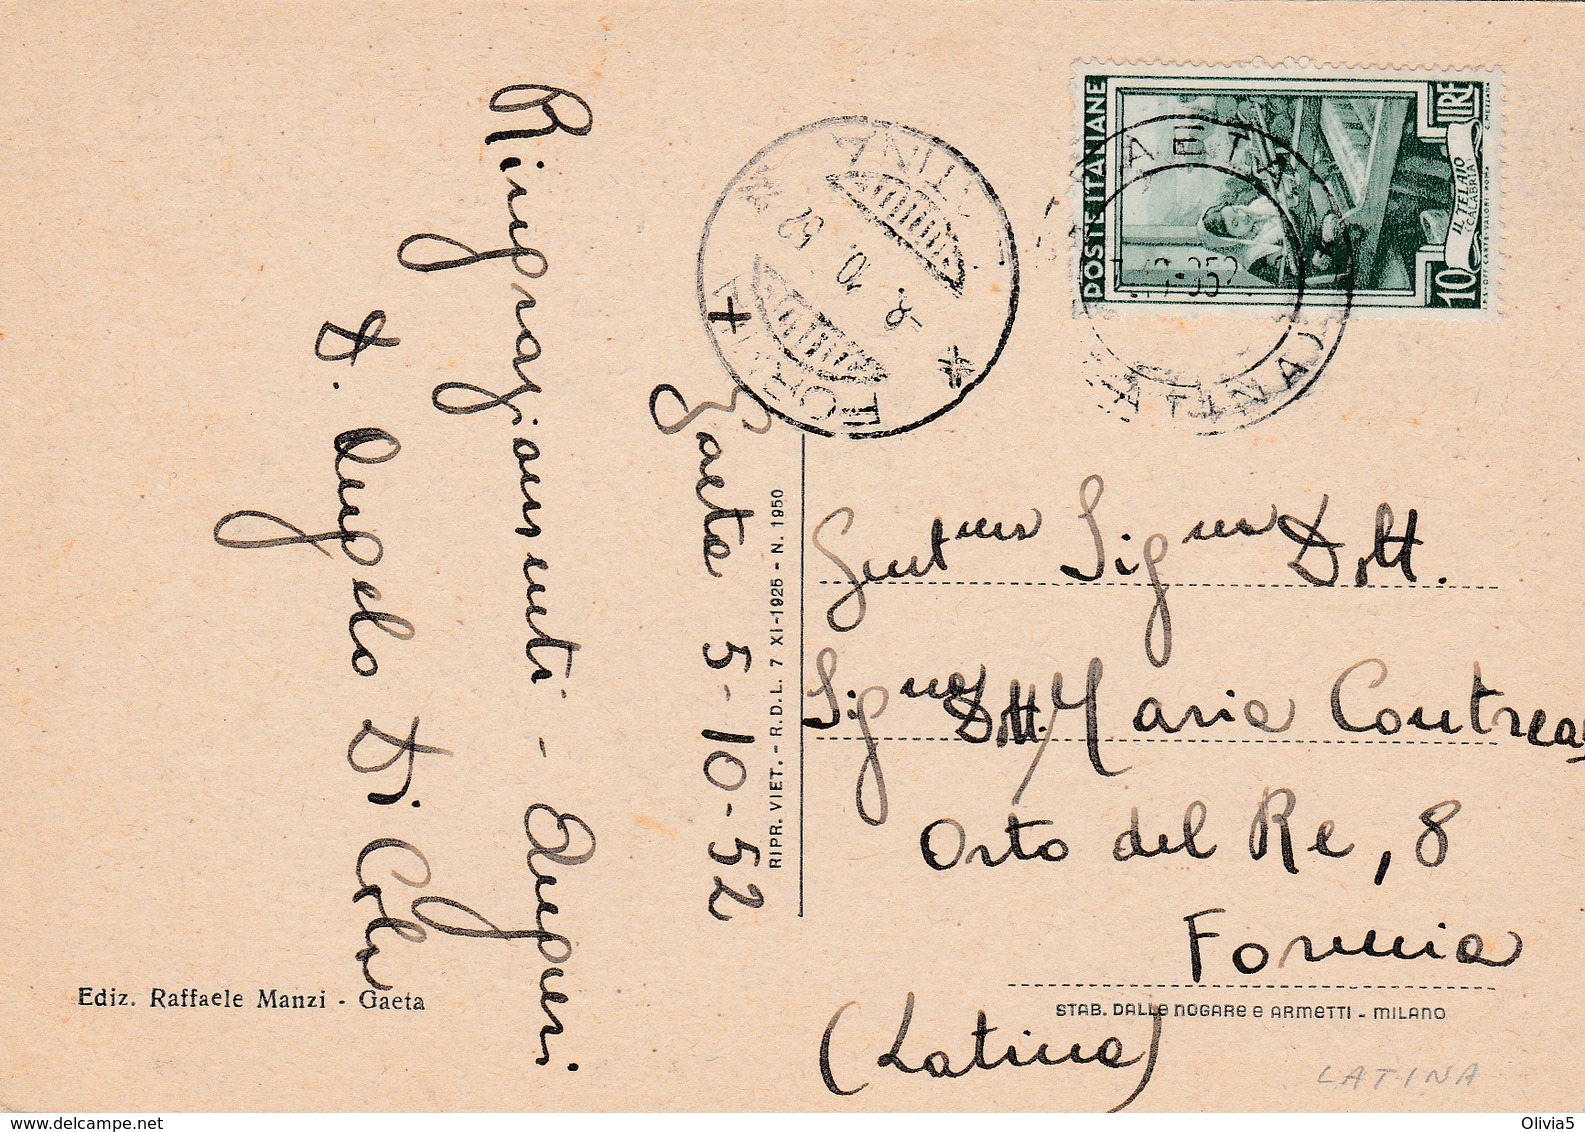 Ringraziamenti - Auguri
A. Angelo Di Cola
Gaeta 5-10-52
RIPR. VIET. - R.D.L. 7 XI-1925 - N. 1950
FORMIA
LATINA
8. 10. 52
POSTE ITALIANE
10 LIRE
IL TELAIO
CALABRIA
GAETA
(LATINA)
Gent.ma Sig.na Dott.
Sig.na Dott. Maria Contreas
Orto del Re, 8
Formia
(Latina)
Ediz. Raffaele Manzi - Gaeta
STAB. DALLE NOGARE E ARMETTI - MILANO
LATINA
www.delcampe.net
Olivia5